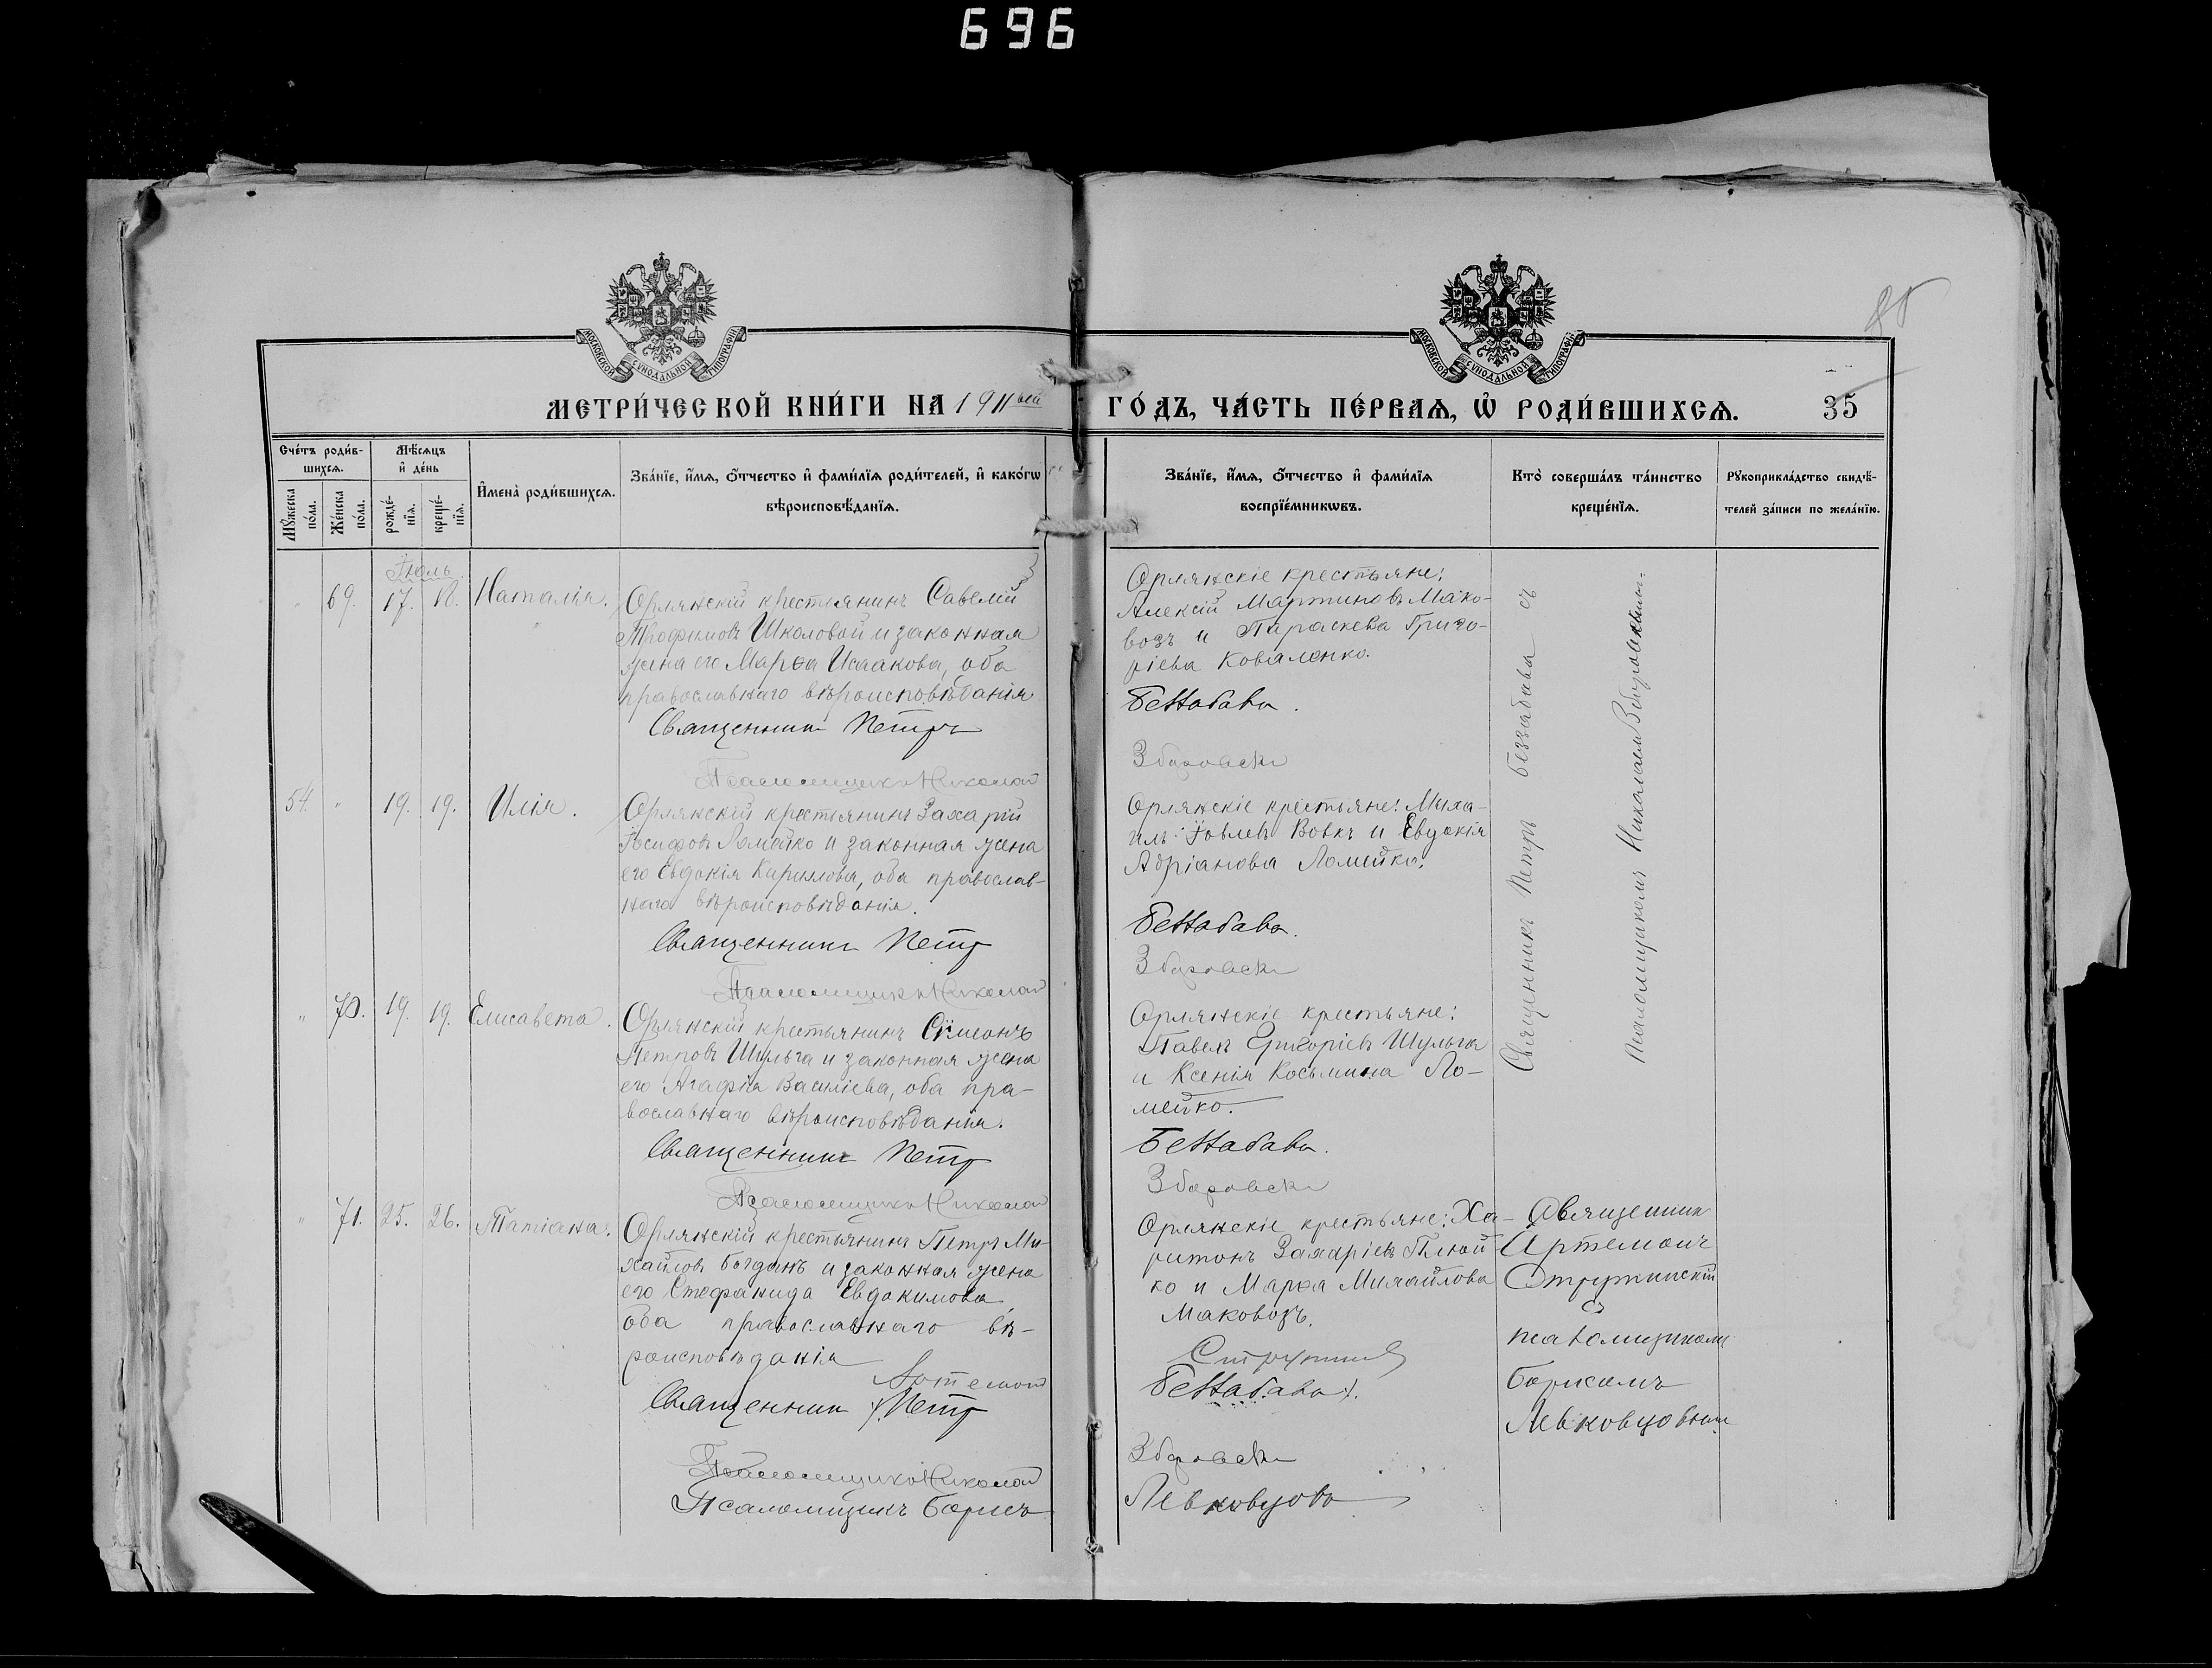 696
МОСКОВСКОЙ СѴНОДАЛЬНОЙ ТИПОГРАФІИ
МОСКОВСКОЙ СѴНОДАЛЬНОЙ ТИПОГРАФІИ
МЕТРИ́ЧЕСКОЙ КНИ́ГИ НА 1911ый ГО́ДЪ, ЧА́СТЬ ПЕ́РВАѦ, Ѡ҆ РОДИ́ВШИХСѦ. 35
Сче́тъ роди́в-
шихсѧ.
Мѹ́жеска по́ла.
Же́нска по́ла.
Мѣ́сѧцъ
и҆ де́нь
рожде́-
нїѧ.
креще́-
нїѧ.
И҆мена̀ роди́вшихсѧ.
Зва́нїе, и҆́мѧ, ѻ҆́тчество и҆ фами́лїѧ роди́телей, и҆ како́гѡ
вѣроисповѣ́данїѧ.
Зва́нїе, и҆́мѧ, ѻ҆́тчество и҆ фами́лїѧ
воспрїе́мникѡвъ.
Кто̀ соверша́лъ та́инство
креще́нїѧ.
Рѹкоприкла́дство свидѣ́-
телей за́писи по жела́нїю.
Іюль.
69. 17. 18. Наталія.
Орлянскій крестьянинъ Савелій
Трофимовъ Школовой и законная
жена его Марѳа Исаакова, оба
православнаго вѣроисповѣданія
Священникъ Петръ
Псаломщикъ Николай
Орлянскіе крестьяне:
Алексій Мартиновъ Мако-
возъ и Параскева Григо-
ріева Коваленко.
Беззабава.
Збаровскій
Священникъ Петръ Беззабава съ
псаломщикомъ Николаемъ Збаровскимъ.
54. " 19. 19. Илія.
Орлянскій крестьянинъ Захарій
Іосифовъ Ломейко и законная жена
его Евдокія Кириллова, оба православ-
наго вѣроисповѣданія.
Священникъ Петръ
Псаломщикъ Николай
Орлянскіе крестьяне: Миха-
илъ Іовлевъ Вовкъ и Евдокія
Адріанова Ломейко.
Беззабава.
Збаровскій
" 70. 19. 19. Елисавета.
Орлянскій крестьянинъ Сѵмеонъ
Петровъ Шульга и законная жена
его Агафія Василіева, оба пра-
вославнаго вѣроисповѣданія.
Священникъ Петръ
Псаломщикъ Николай
Орлянскіе крестьяне:
Павелъ Григоріевъ Шульга
и Ксенія Косьмина Ло-
мейко.
Беззабава.
Збаровскій
" 71. 25. 26. Татіана.
Орлянскій крестьянинъ Петръ Ми-
хайловъ Богданъ и законная жена
его Стефанида Евдокимова
оба православнаго вѣ-
роисповѣданія
Артемон
Священникъ Петръ
Псаломщикъ Николай
Псаломщикъ Борисъ
Орлянскіе крестьяне: Ха-
ритонъ Захаріевъ
ко и Марѳа Михайлова
Маковозъ.
Беззабава.
Збаровскій
Левковцовъ
Священникъ
Артемонъ
Струтинскій
съ
псаломщикомъ
Борисомъ
Левковцовымъ